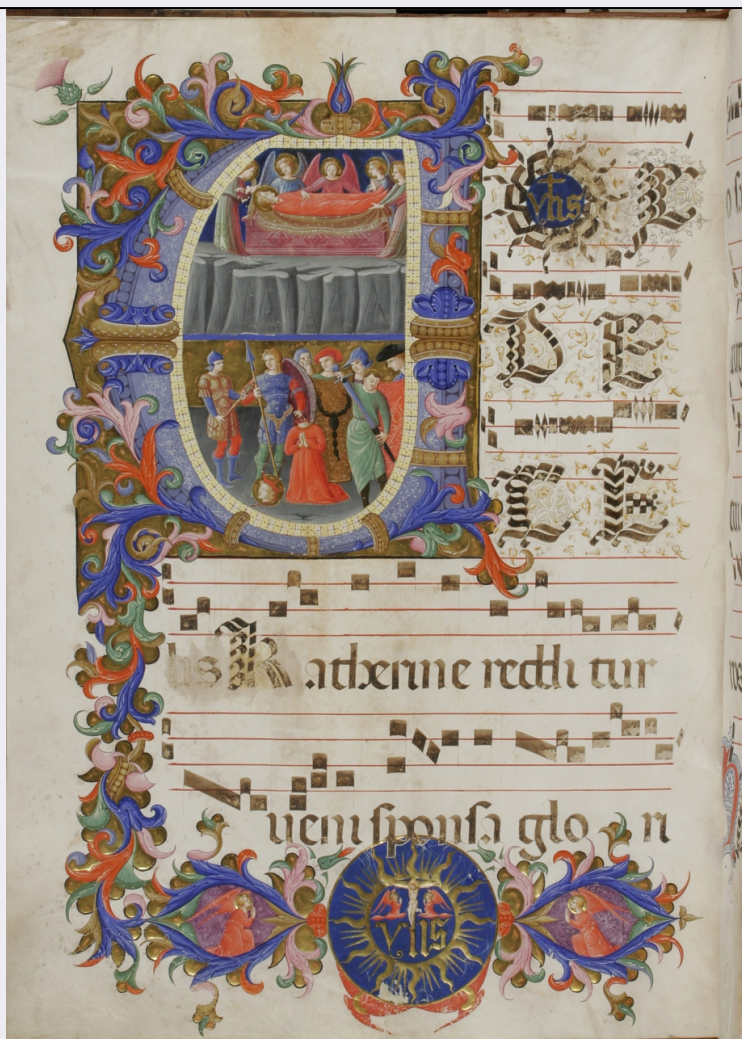 yhs R
D E
L E
bs Katherine reddi tur
veni sponsa glo ri
yhs